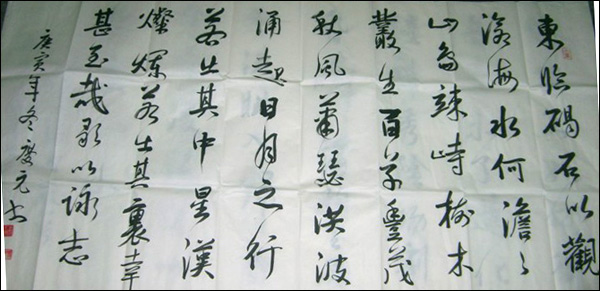 東臨碣石以觀
滄海水何澹々
山島竦峙樹木
叢生百草豐茂
秋風蕭瑟洪波
涌起日月之行
若出其中星漢
燦爛若出其裏幸
甚至哉歌以詠志
庚寅年冬慶元书